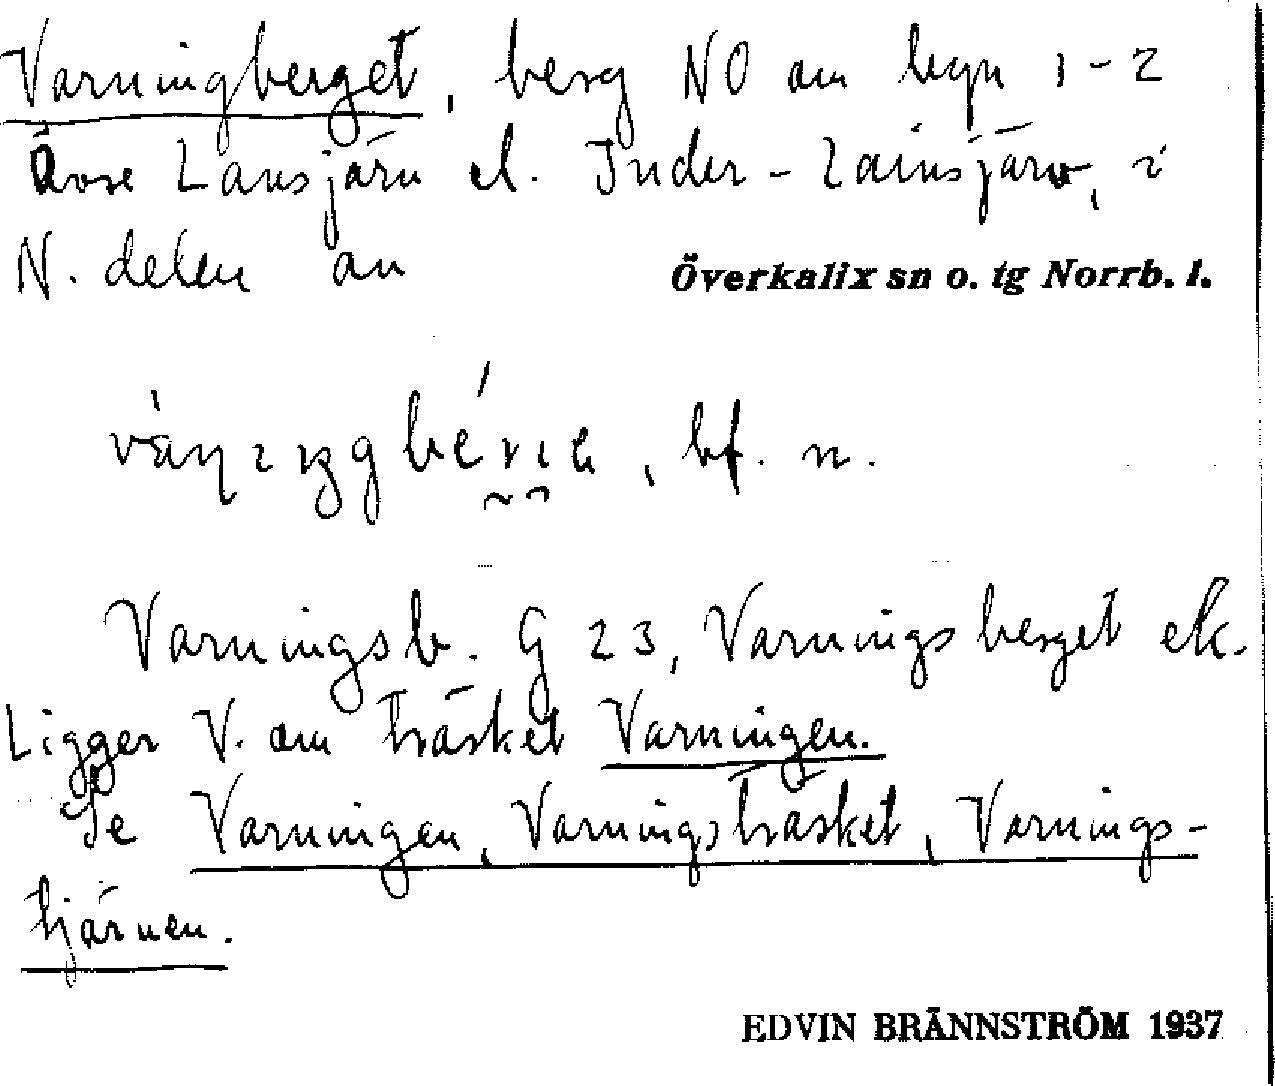 Varningberget, berg NO om byn 1-2
Övre Lansjärv el. Inder-Lainsjärv, i
N. delen av Överkalix sn o. tg Norrb. l.
, bf. n.
Varningsb. G 23, Varningsberget ek.
Ligger V. om träsket Varningen.
Se Varningen, Varningsträsket, Varnings-
tjärnen.
EDVIN BRÄNNSTRÖM 1937